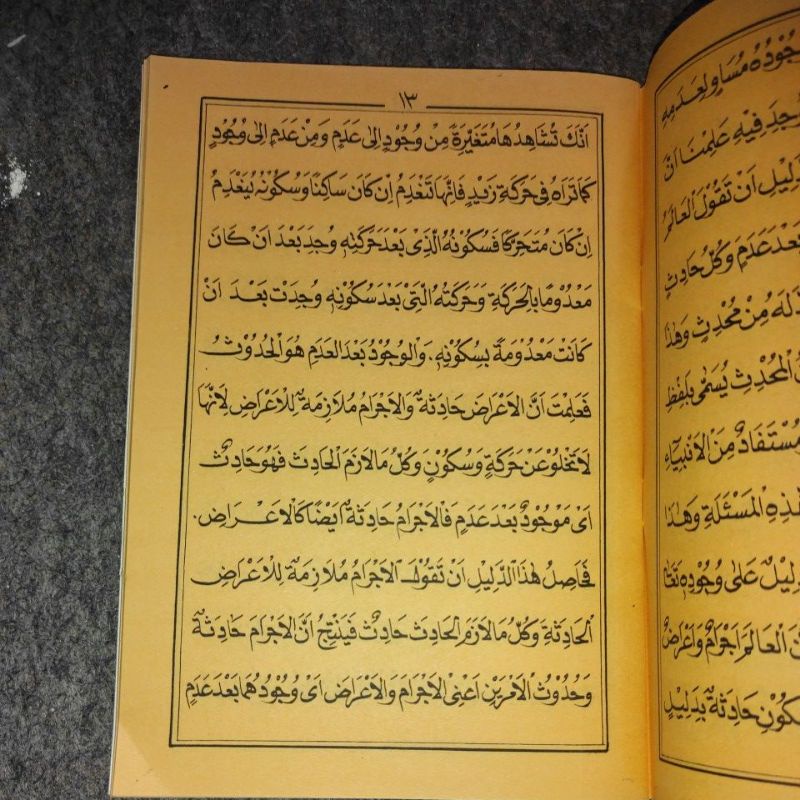 ١٣
اَنَّكَ تُشَاهِدُهَا مُتَغَيِّرَةً مِنْ وُجُوْدٍ اِلٰى عَدَمٍ وَمِنْ عَدَمٍ اِلٰى وُجُوْدٍ
كَمَا تَرَاهُ فِى حَرَكَةِ زَيْدٍ فَاِنَّهَا تَنْعَدِمُ اِنْ كَانَ سَاكِنًا وَسُكُوْنُهُ يَنْعَدِمُ
اِنْ كَانَ مُتَحَرِّكًا فَسُكُوْنُهُ الَّذِىْ بَعْدَ حَرَكَتِهِ وُجِدَ بَعْدَ اَنْ كَانَ
مَعْدُوْمًا بِالْحَرَكَةِ وَحَرَكَتُهُ الَّتِىْ بَعْدَ سُكُوْنِهِ وُجِدَتْ بَعْدَ اَنْ
كَانَتْ مَعْدُوْمَةً بِسُكُوْنِهِ، وَالْوُجُوْدُ بَعْدَ الْعَدَمِ هُوَ الْحُدُوْثُ
فَعَلِمْتَ اَنَّ الْاَعْرَاضَ حَادِثَةٌ وَالْاَجْرَامُ مُلَازِمَةٌ لِلْاَعْرَاضِ لِاَنَّهَا
لَا تَخْلُوْ عَنْ حَرَكَةٍ وَسُكُوْنٍ وَكُلُّ مَا لَازَمَ الْحَادِثَ فَهُوَ حَادِثٌ
اَىْ مَوْجُوْدٌ بَعْدَ عَدَمٍ فَالْاَجْرَامُ حَادِثَةٌ اَيْضًا كَالْاَعْرَاضِ.
فَحَاصِلُ هٰذَا الدَّلِيْلِ اَنْ تَقُوْلَ الْاَجْرَامُ مُلَازِمَةٌ لِلْاَعْرَاضِ
الْحَادِثَةِ وَكُلُّ مَا لَازَمَ الْحَادِثَ حَادِثٌ فَيَنْتِجُ اَنَّ الْاَجْرَامَ حَادِثَةٌ
وَحُدُوْثُ الْاَمْرَيْنِ اَعْنِى الْاَجْرَامَ وَالْاَعْرَاضَ اَىْ وُجُوْدُهُمَا بَعْدَ عَدَمٍ
وُجُوْدُهُ مُسَاوٍ لِعَدَمِهِ
وُجِدَ فِيْهِ عَلِمْنَا اَنَّ
دَلِيْلِ اَنْ تَقُوْلَ الْعَالَمُ
بَعْدَ عَدَمٍ وَكُلُّ حَادِثٍ
لَهُ مِنْ مُحْدِثٍ وَهٰذَا
الْمُحْدِثِ يُسَمّٰى بِلَفْظِ
مُسْتَفَادٌ مِنَ الْاَنْبِيَاءِ
هٰذِهِ الْمَسْئَلَةِ وَهٰذَا
دَلِيْلٌ عَلٰى وُجُوْدِهِ تَعَا
الْعَالَمَ اَجْرَامٌ وَاَعْرَاضٌ
سُكُوْنِ حَادِثَةٌ بِدَلِيْلِ